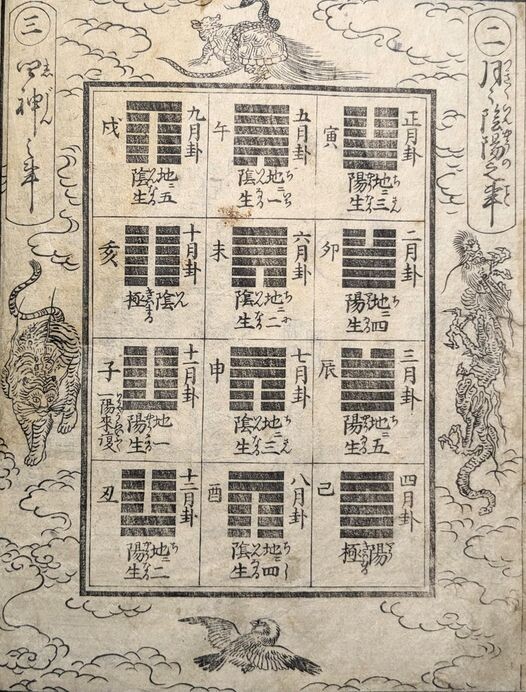 二
月〻陰陽之事
正月卦
寅
地ニ三
陽生
二月卦
卯
地ニ四
陽生
三月卦
辰
地ニ五
陽生
四月卦
巳
陽
極
五月卦
午
地ニ一
陰生
六月卦
未
地ニ二
陰生
七月卦
申
地ニ三
陰生
八月卦
酉
地ニ四
陰生
九月卦
戌
地ニ五
陰生
十月卦
亥
陰
極
十一月卦
子
地一
陽生
陽來復
十二月卦
丑
地ニ二
陽生
三
四神之事